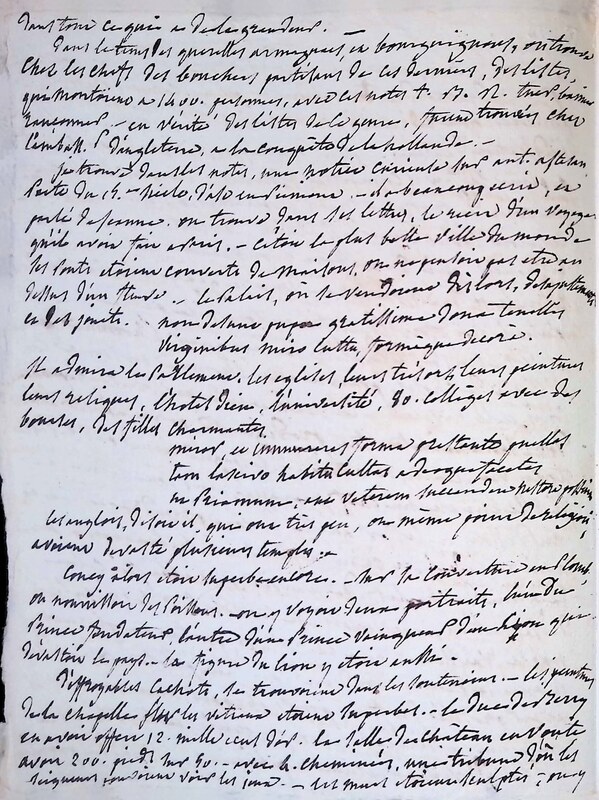 dans tout ce qui a de la grandeur. —
Dans le tems des querelles armagnacs, en bourguignons, on trouva
chez les chefs des bouchers partisans de ces derniers, des listes,
qui montoient a 1400. personnes, avec ces notes t. B. R. tuer, bannir
rançonner. — en vérité des listes de ce genre, furent trouvées chez
l'ambass. d'angleterre, a la conquête de la hollande. —
Je trouve dans les notes, une notice curieuse sur ant. astesan
Poete du 15. siecle, d'ast en Piemont. — il a beaucoup écrit, et
parlé de Jeanne. on trouve dans ses lettres, le récit d'un voyage
qu'il avoit fait a Paris. — C'étoit la plus belle ville du monde
les ponts étoient couverts de maisons, on ne pensoit pas etre au
dessus d'un fleuve. — le Palais, où se vendoient des lors, des ajustemens
et des jouets. non desunt pupae gratissima dona tenellis
Virginibus miro cultu, formaque decorae.
Il admira le Parlement, les eglises, leurs trésors, leurs peintures
leurs reliques, l'hotel dieu, l'université, 80. collèges avec des
bourses, des filles charmantes
miror, et innumeras forma praestante puellas
tam lascivo habitu cultas adeoque facetas
ut Priamum, aut veterem succendere Nestora possint
les anglois, disoit il, qui ont très peu, ou même point de religion,
avoient devasté plusieurs temples. —
Coucy alors étoit superbe encore. — sur sa couverture en plomb,
on nourrissoit des poissons. — on y voyoit deux portraits, l'un du
Prince fondateur, l'autre d'un Prince vainqueur d'un Lyon qui
devastoit le pays. — la figure du lion y étoit aussi. —
d'effroyables cachots, se trouvoient dans les souterreins. — les peintures
de la chapelle sur les vitraux étoient superbes. — le duc de Berry
en avoit offert 12. mille ecus d'or. la salle du château en voute
avoit 200. pieds sur 50. — avec 2. cheminées, une tribune d'où les
seigneurs voir les jeux. — les murs étoient sculptés ; on y